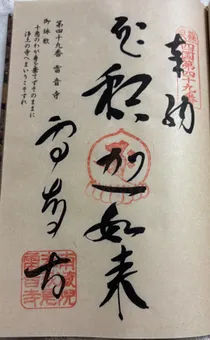 奉納
四国第四十九番
釈迦如来
雷音寺
第四十九番 雷音寺
御詠歌
十悪のわが身を棄てずそのままに
浄土の寺へまいりこそすれ